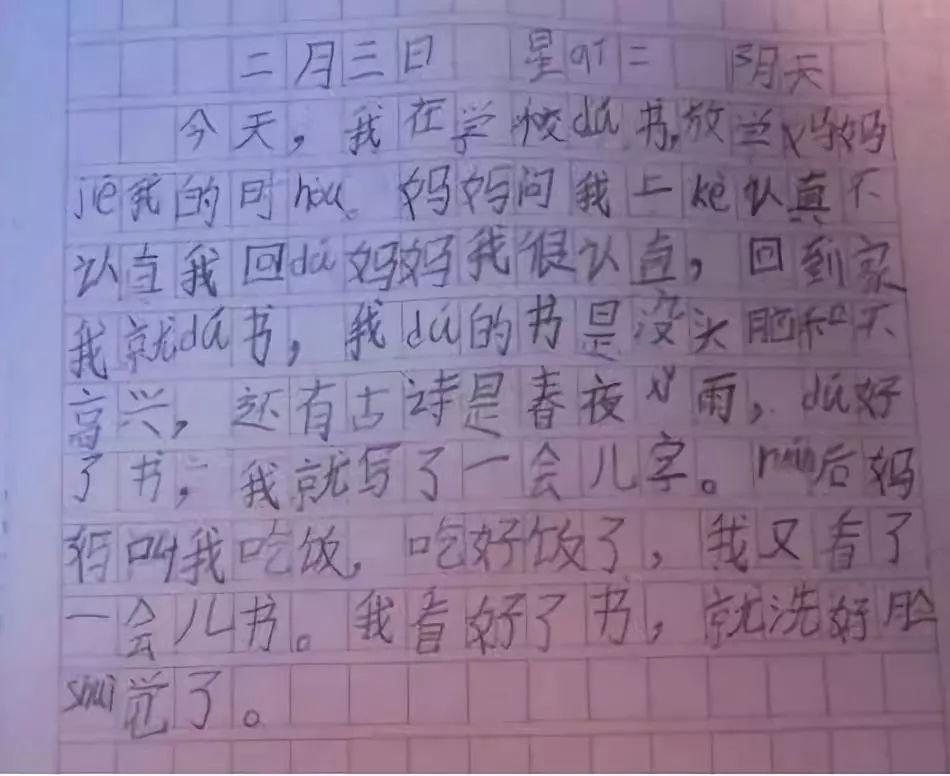 二月三日 星qī二 阴天
今天，我在学校dú书，放学妈妈
jiē我的时hòu。妈妈问我上kè认真不
认真我回dú妈妈我很认真，回到家
我就dú书，我dú的书是没头脑和不
高兴，还有古诗是春夜xǐ雨，dú好
了书，我就写了一会儿字。rán后妈
妈叫我吃饭，吃好饭了，我又看了
一会儿书。我看好了书，就洗好脸
shuì觉了。